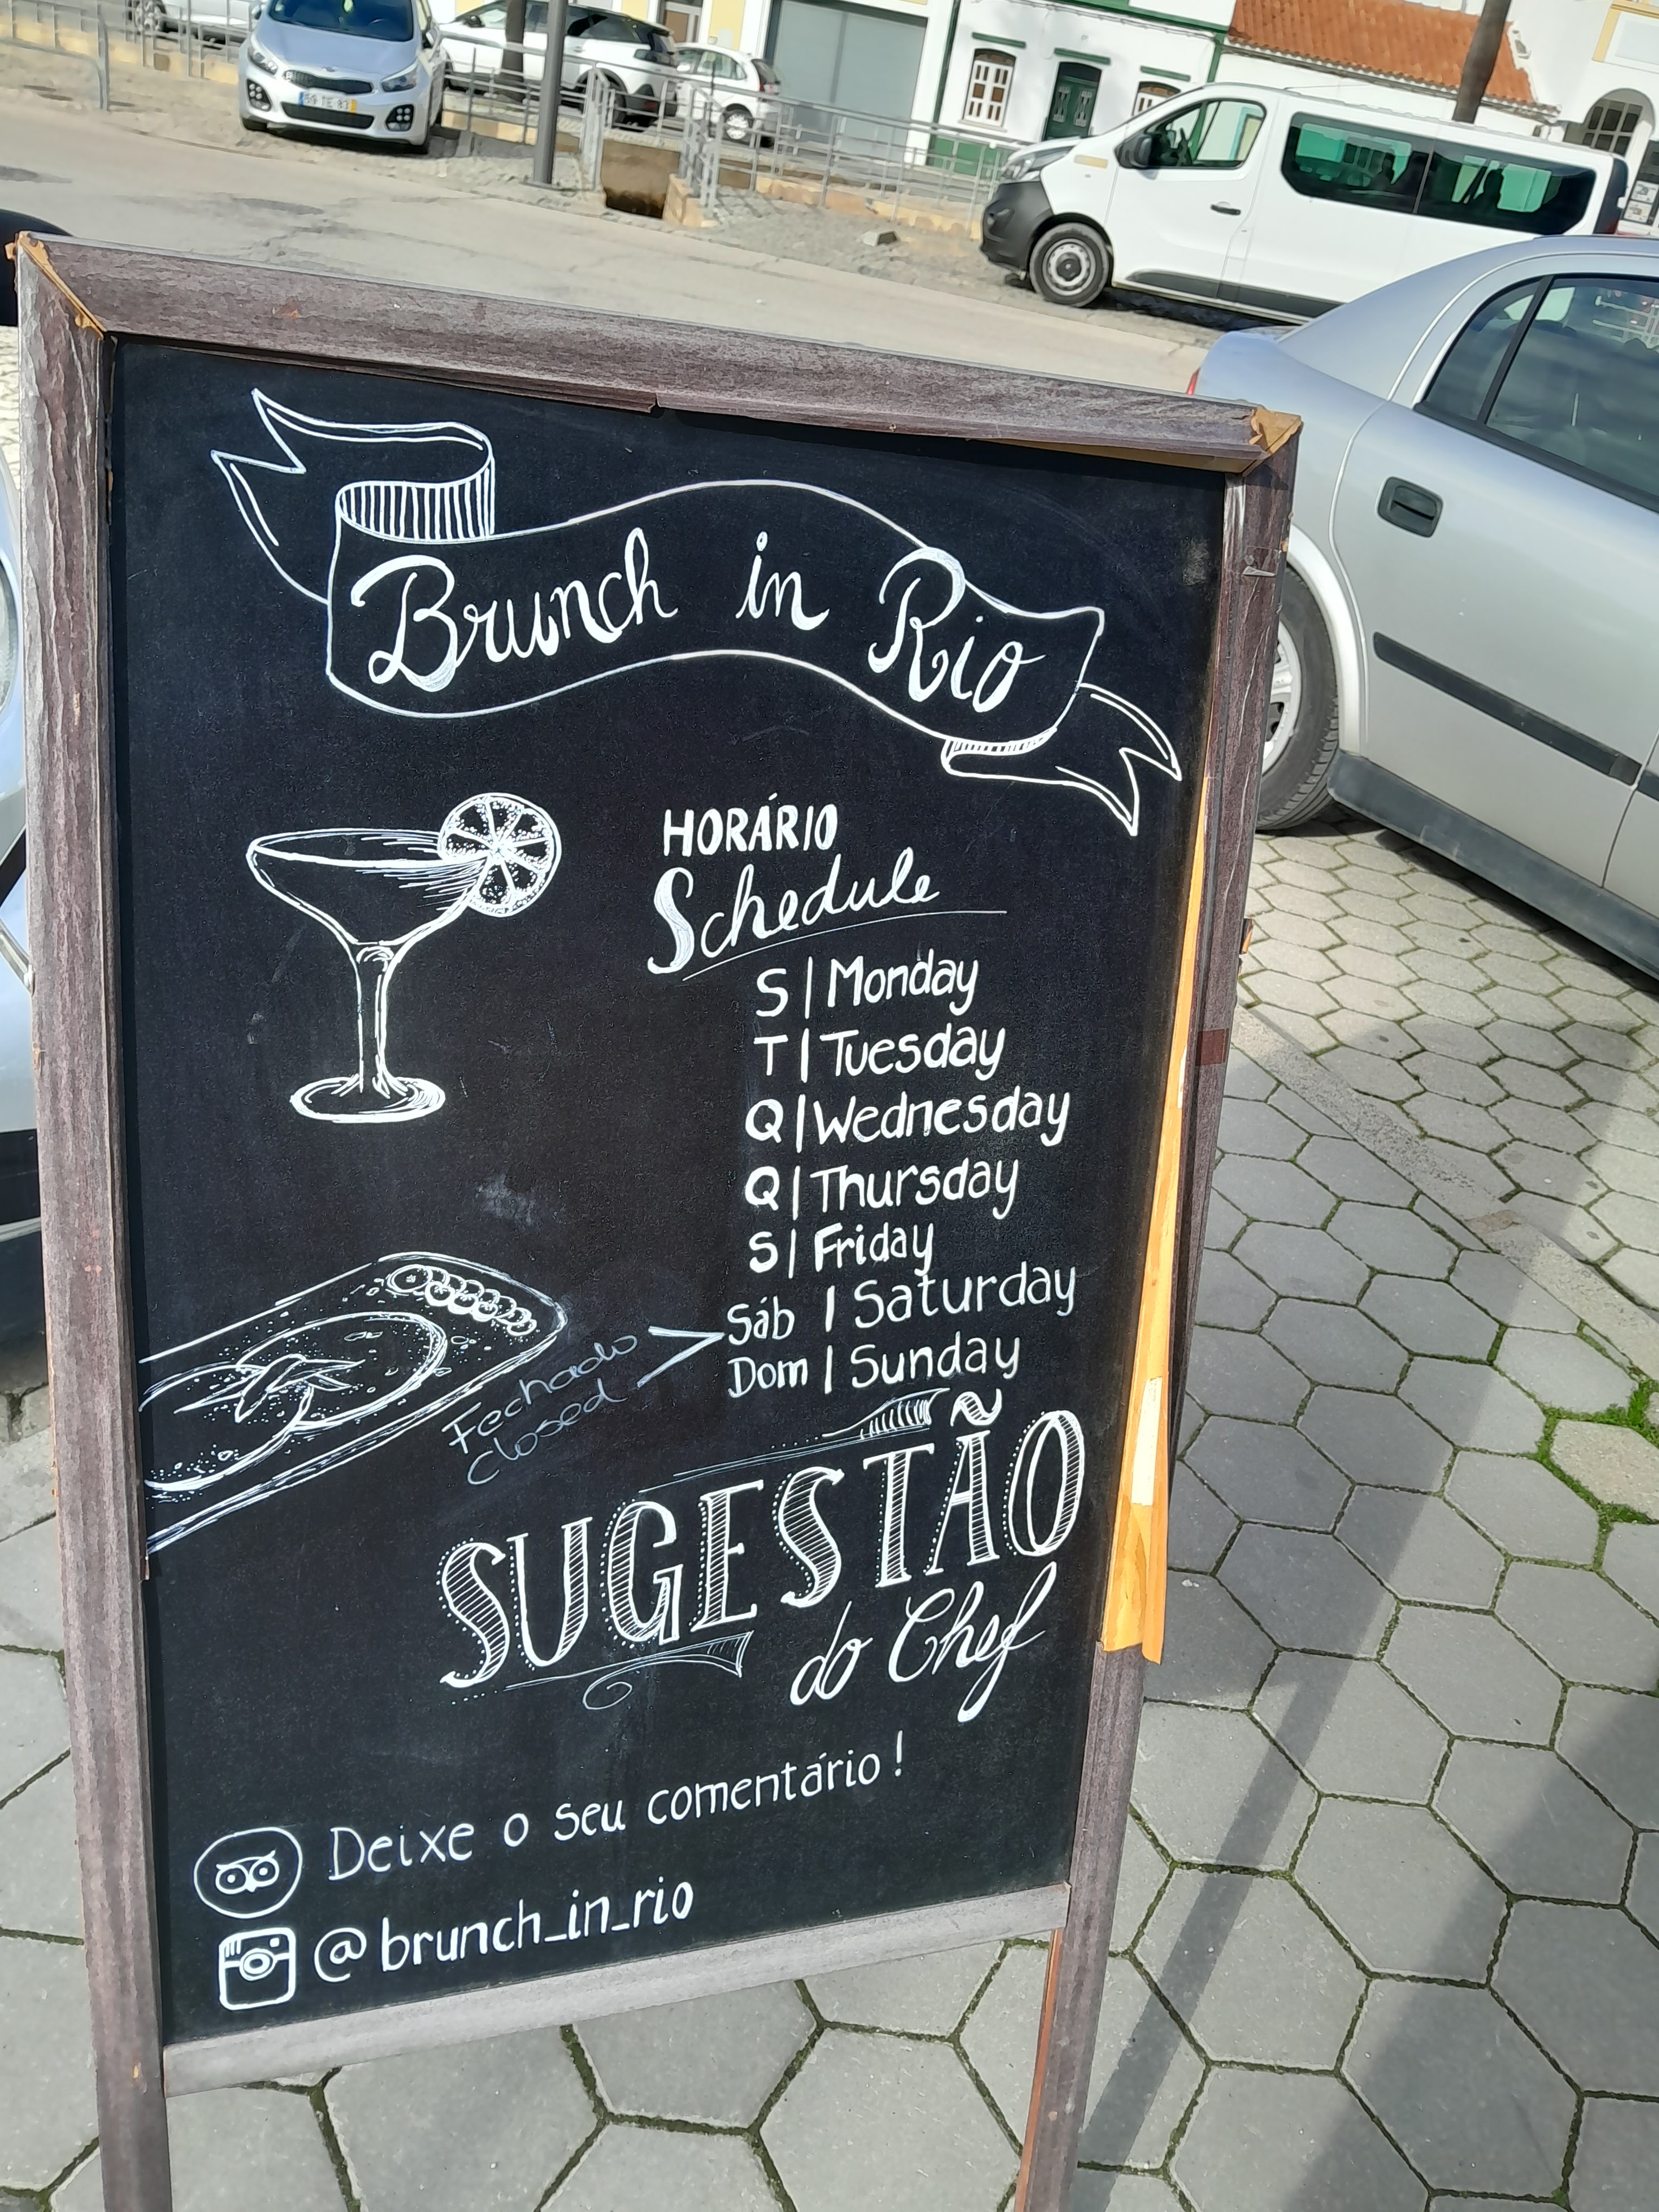 Brunch in Rio
HORÁRIO
Schedule
S | Monday
T | Tuesday
Q | Wednesday
Q | Thursday
S | Friday
Sáb | Saturday
Dom | Sunday
Fechado
closed
SUGESTÃO
do Chef
Deixe o seu comentário!
@brunch_in_rio